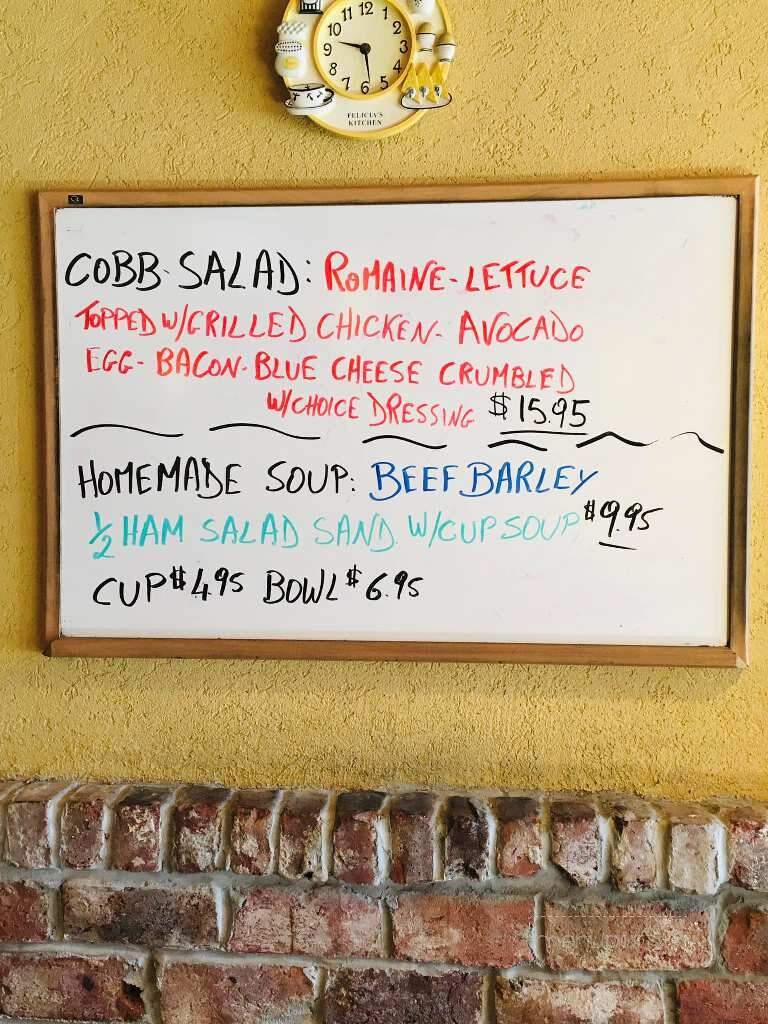 11 12 1
10 2
9 3
8 4
7 6 5
FELICIA'S
KITCHEN
COBB SALAD: ROMAINE-LETTUCE
TOPPED W/GRILLED CHICKEN- AVOCADO
EGG- BACON-BLUE CHEESE CRUMBLED
W/CHOICE DRESSING $15.95
HOMEMADE SOUP: BEEF BARLEY
1/2 HAM SALAD SAND. W/CUP SOUP $9.95
CUP $4.95 BOWL $6.95